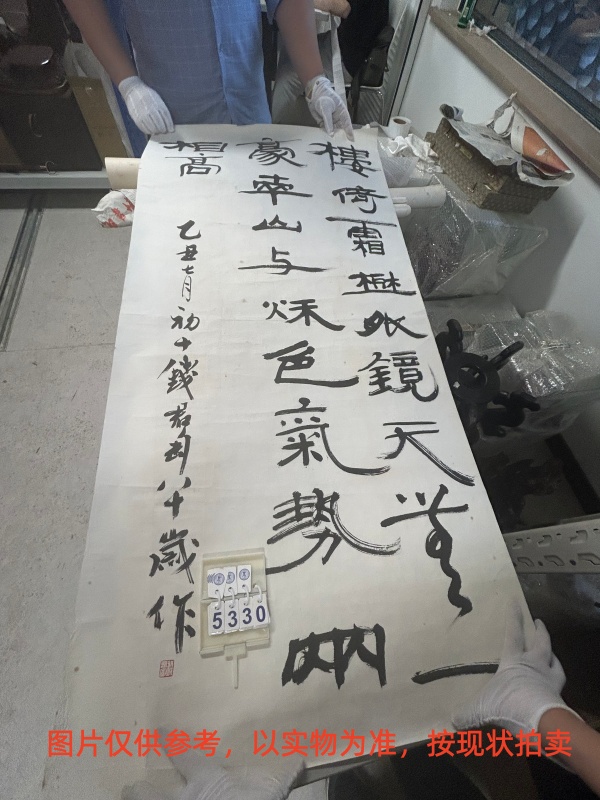 樓倚霜樹外鏡天無一
豪南山与秌色氣勢兩
相高
乙丑七月初十錢君匋八十歲作
5330
图片仅供参考，以实物为准，按现状拍卖